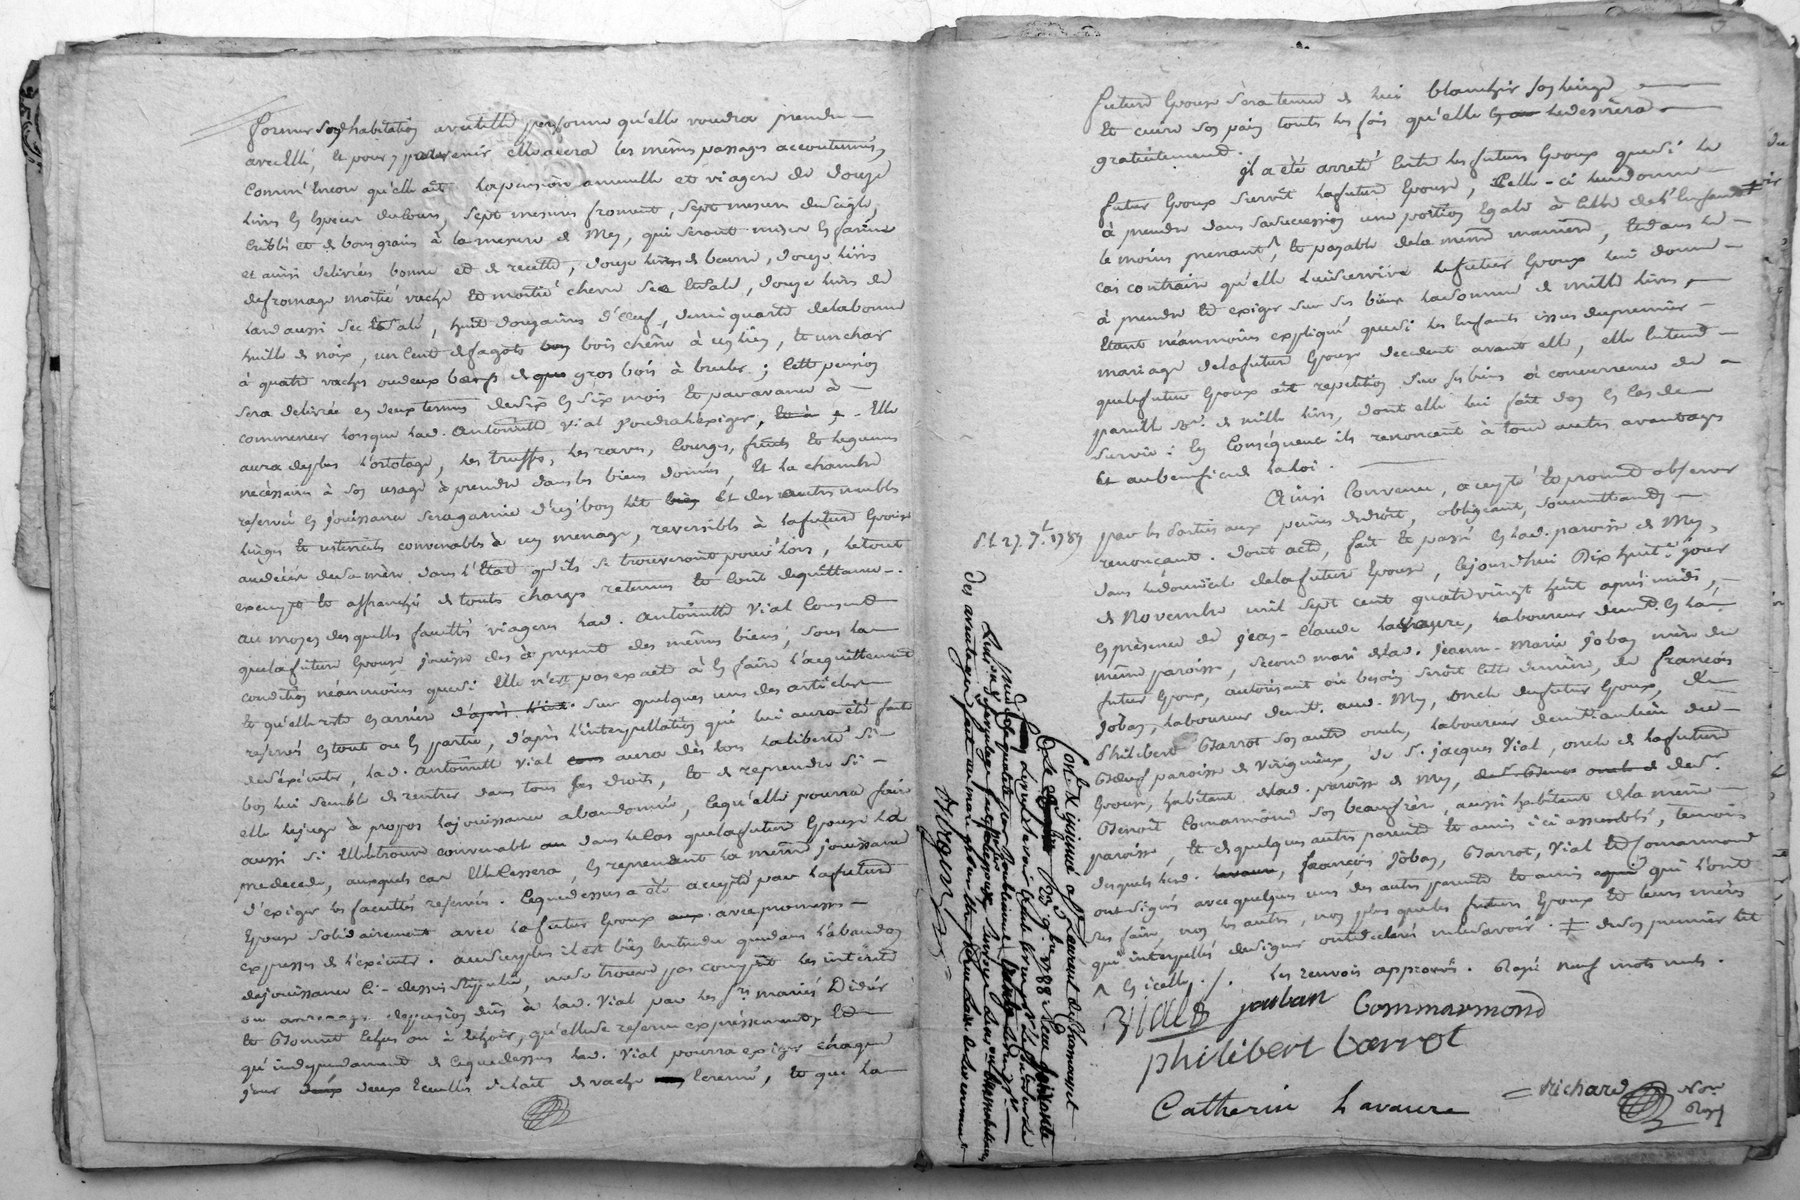 former son habitation avec telle personne qu'elle voudra prendre
avec elle, et pour y parvenir elle aura les mêmes passages accoutumés,
comm' encore qu'elle ait la pension annuelle et viagere de douze
livres en espece du cours, sept mesures froment, sept mesures de seigle,
criblés et de bons grains à la mesure de Mey, qui seront mises en farine
et ainsi delivrées bonne et de recette, douze livres de beurre, douze livres
de fromage moitié vache et moitié chevre sec et salé, douze livres de
lard aussi sec et salé, huit douzaines d'œuf, demi quarte de la bonne
huille de noix, un cent de fagots bois chêne à un lien, et un char
à quatre vaches ou deux bœufs de gros bois à bruler ; cette pension
sera delivrée en deux termes de six en six mois et par avance à
commencer lorsque lad. Antoinette Vial voudra l'exiger, Elle
aura de plus l'ortolage, les truffes, les raves, courges, fruits et legumes
nécessaires à son usage à prendre dans les biens donnés, Et la chambre
reservée en jouissance sera garnie d'un bon lit Et des autres meubles
linges et ustensiles convenables à un menage, reversibls à la future Epouse
au décès de sa mère, dans l'Etat qu'ils se trouveront pour lors, le tout
exempt et affranchi de touts charges retenues et coût de quittance.
au moyen des quelles facultés viageres lad. Antoinette Vial consent
que la future Epouse jouisse dès à present des mêmes biens, sous la
condition néanmoins que si Elle n'est pas exacte à en faire l'acquittement
et qu'elle reste en arriere sur quelques uns des articles
reservés en tout ou en partie, d'après l'interpellation qui lui aura été faite
de l'exécuter, lad. Antoinette Vial aura dès lors la liberté si
bon lui semble de rentrer dans tous ses droits, et de reprendre si
elle le juge à propos la jouissance abandonnée, ce qu'elle pourra faire
aussi si Elle le trouve convenable dans le cas que la future Epouse la
predecede, auxquels cas Elle cessera, en reprenant la même jouissance
d'exiger les facultés reservées. Ce que dessus a été accepté par la future
Epouse solidairement avec le futur Epoux avec promesse
expresse de l'exécuter. au surplus il est bien entendu que dans l'abandon
de jouissance ci-dessus stipulé, ne se trouve pas compris les intérêts
ou arrerages de pension dûs à lad. Vial par les mariés Didier
et Bonnet échus ou à échoir, qu'elle se reserve expressément, Et
qu'independament de ce que dessus lad. Vial pourra exiger chaque
jour deux Ecuelles de lait de vache ecremé, et que la
future Epouse sera tenue de lui blanchir son linge
Et cuire son pain touts les fois qu'elle le desirera
gratuitement.
il a été arreté entre les futurs Epoux que si le
futur Epoux survit la future Epouse, Celle-ci lui donne
à prendre dans sa succession une portion egale à celle de l'enfant
le moins prenant, et payable de la même maniere, et dans le
cas contraire qu'elle lui survive le futur Epoux lui donne
à prendre et exiger sur ses biens la somme de mille livres,
Etant néanmoins expliqué que si les Enfants issus du premier
mariage de la future Epouse decedent avant elle, elle entend
que le futur Epoux ait repetition sur ses biens à concurrence de
pareille so.e de mille livres, dont elle lui fait don en cas de
survie : En conséquence ils renoncent à tous autres avantages
Et au benefice de la loi.
Ainsi convenu, accepté et promit observer
par les parties aux peines de droit, obligeant, soumettant,
renonçant. dont acte, fait et passé en lad. paroisse de Mey,
dans le domicile de la future Epouse, le jourd'hui Dix huit.e jour
de Novembre mil sept cent quatre vingt huit après midi,
En présence de jean-claude Lavaure, laboureur demt. en la
même paroisse, second mari de lad. Jeanne-Marie Joban mère du
futur Epoux, autorisant où besoin seroit cette derniere, de françois
Joban, laboureur demt. aud. Mey, oncle du futur Epoux, de
Philibert Barrot son autre oncle, laboureur demt. au lieu de
Bœuf paroisse de Virigneux, de S.r jacques Vial, oncle de la future
Epouse, habitant de lad. paroisse de Mey, de S.r
Benoît Comarmond son beaufrère, aussi habitant de la même
paroisse, Et de quelques autres parents et amis ici assemblés, temoins
desquels lesd. françois Joban, Barrot, Vial et Comarmond
ont signés avec quelques uns des autres parents et amis qui l'ont
sçu faire, non les autres, non plus que les futurs Epoux et leurs mères
qui interpellés de signer ont declaré ne le savoir. ǂ de son premier lit
^ En icelle ./. Les renvois approuvés. Rayé neuf mots nuls.
Vial jouban Commarmond
philibert barrot
Catherine Lavaure
Richard No.re
Royl
Con.lé & insinué a S.t Laurent de Chamousset